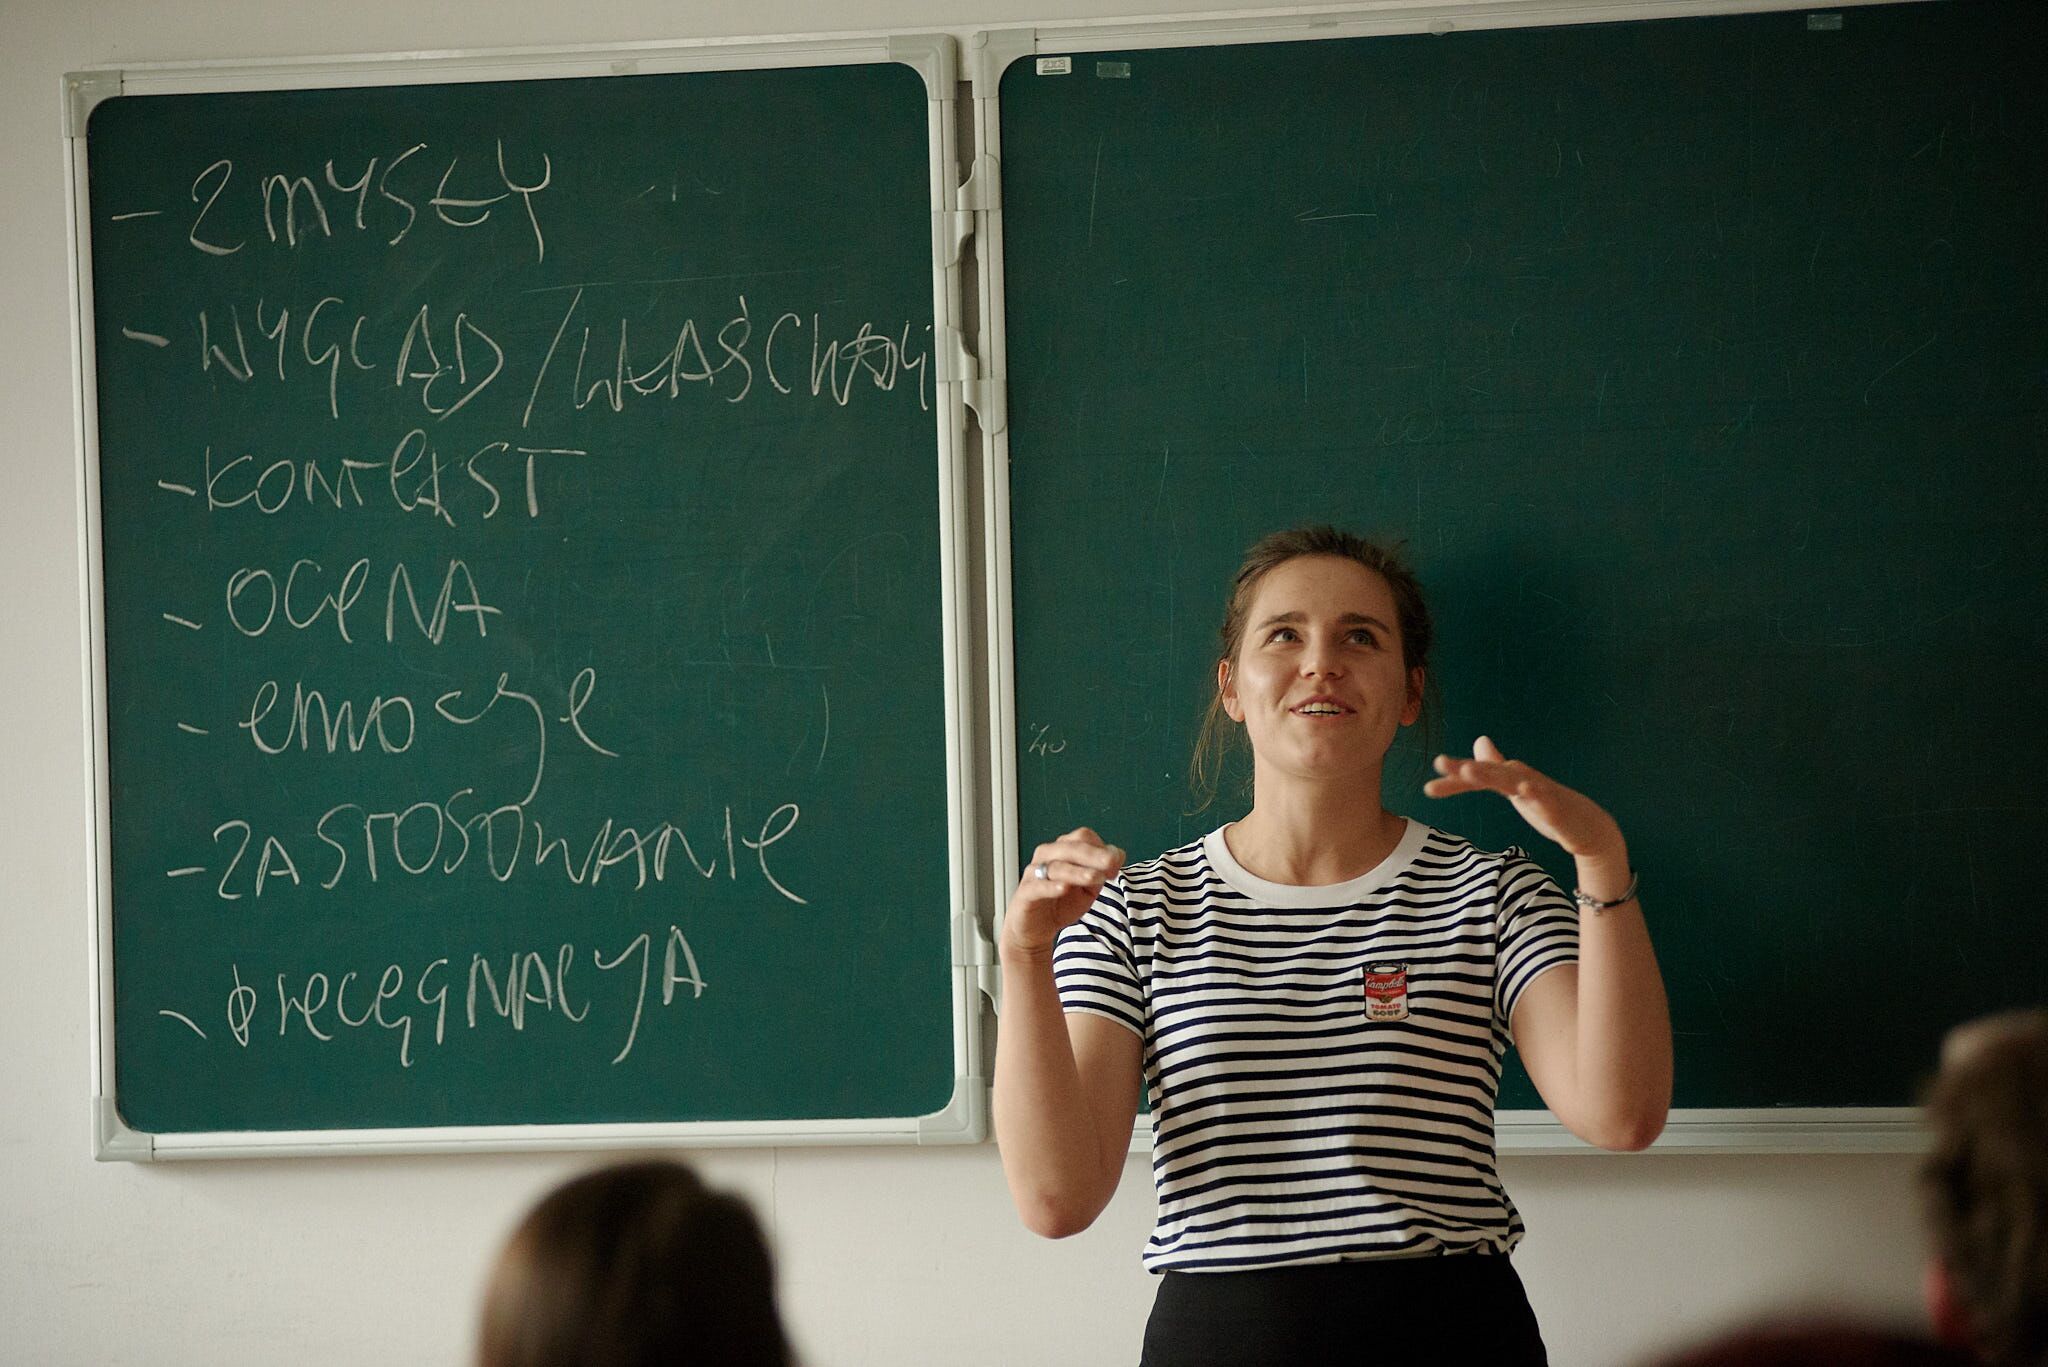 - ZMYSŁY
- WYGLĄD / WŁAŚCIWOŚCI
- KONTEKST
- OCENA
- EMOCJE
- ZASTOSOWANIE
- PIELĘGNACJA
2x3
Campbell's
TOMATO
SOUP